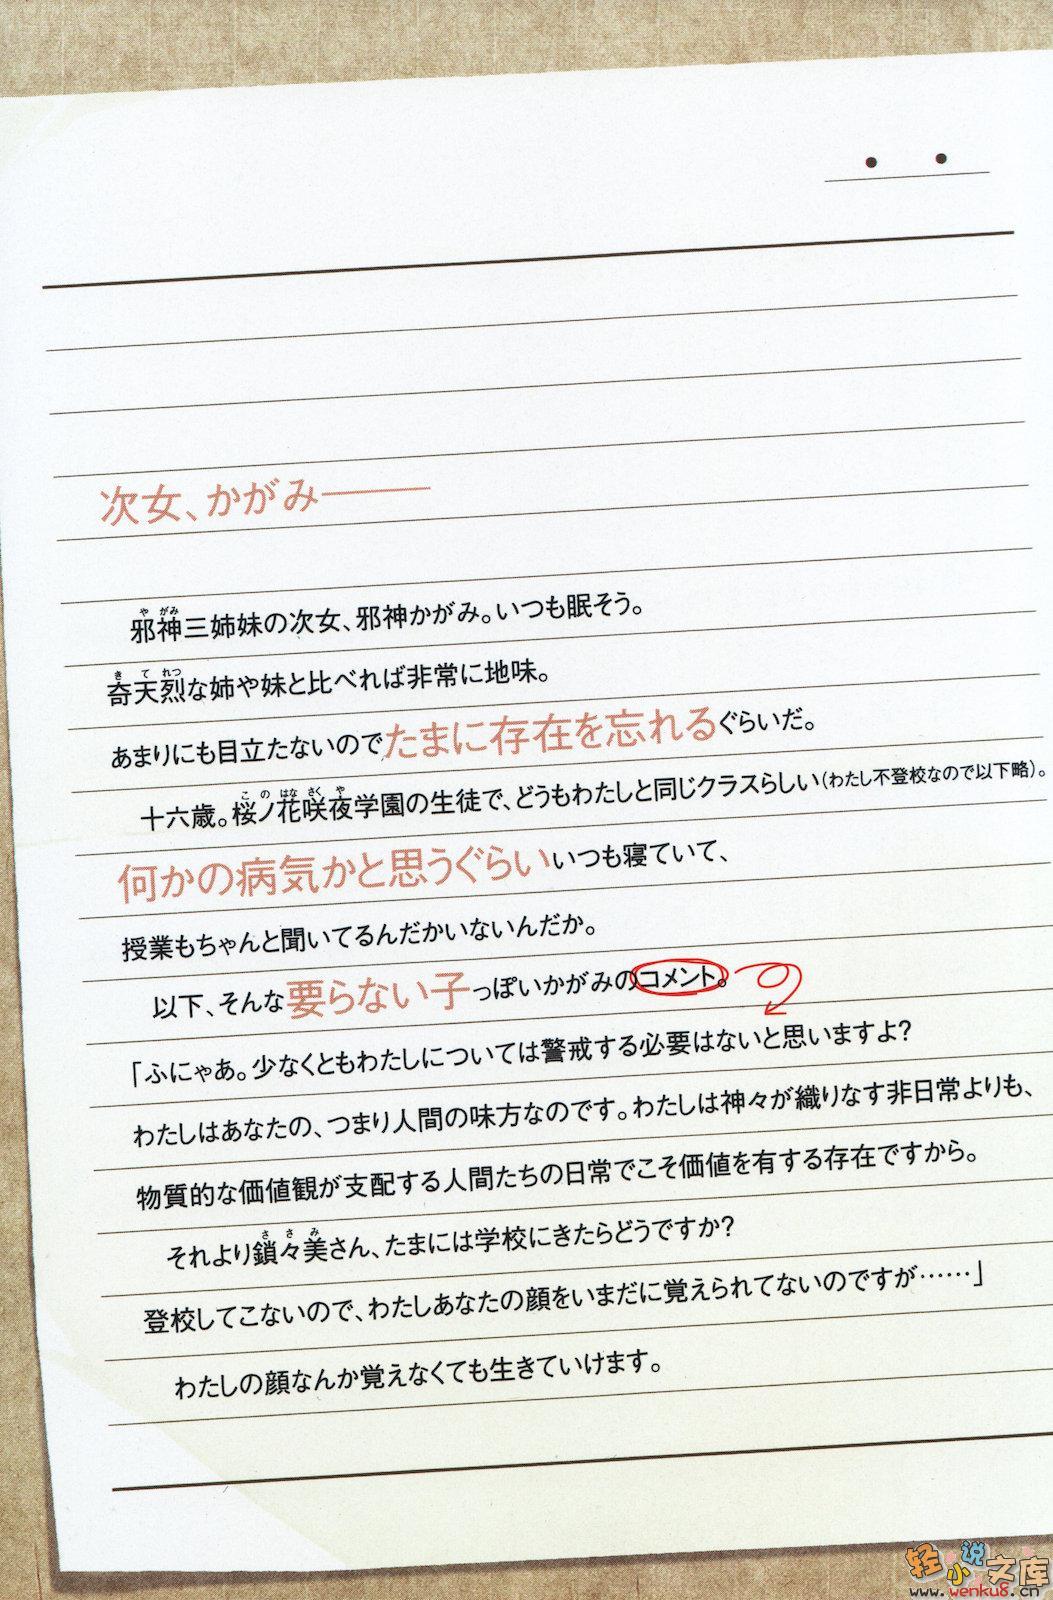 次女、かがみ———
邪神三姉妹の次女、邪神かがみ。いつも眠そう。
奇天烈な姉や妹と比べれば非常に地味。
あまりにも目立たないのでたまに存在を忘れるぐらいだ。
十六歳。桜ノ花咲夜学園の生徒で、どうもわたしと同じクラスらしい(わたし不登校なので以下略)。
何かの病気かと思うぐらいいつも寝ていて、
授業もちゃんと聞いてるんだかいないんだか。
以下、そんな要らない子っぽいかがみのコメント。
「ふにゃあ。少なくともわたしについては警戒する必要はないと思いますよ?
わたしはあなたの、つまり人間の味方なのです。わたしは神々が織りなす非日常よりも、
物質的な価値観が支配する人間たちの日常でこそ価値を有する存在ですから。
それより鎖々美さん、たまには学校にきたらどうですか?
登校してこないので、わたしあなたの顔をいまだに覚えられてないのですが……」
わたしの顔なんか覚えなくても生きていけます。
轻小说文库
www.wenku8.cn